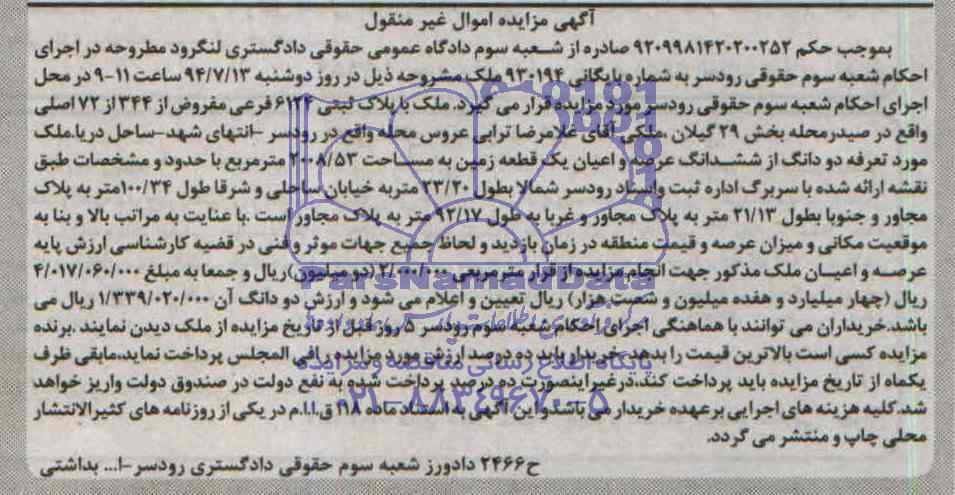 آگهی مزایده اموال غیر منقول
بموجب حکم ۹۲۰۹۹۸۱۴۲۰۲۰۰۲۵۲ صادره از شعبه سوم دادگاه عمومی حقوقی دادگستری لنگرود مطروحه در اجرای
احکام شعبه سوم حقوقی رودسر به شماره بایگانی ۹۳۰۱۹۴ ملک مشروحه ذیل در روز دوشنبه ۹۴/۷/۱۳ ساعت ۱۱-۹ در محل
اجرای احکام شعبه سوم حقوقی رودسر مورد مزایده قرار می گیرد. ملک با پلاک ثبتی ۶۱۲۴ فرعی مفروض از ۳۴۴ از ۷۲ اصلی
واقع در صیدرمحله بخش ۲۹ گیلان ،ملکی آقای غلامرضا ترابی عروس محله واقع در رودسر -انتهای شهد-ساحل دریا.ملک
مورد تعرفه دو دانگ از ششدانگ عرصه و اعیان یک قطعه زمین به مساحت ۲۰۰۸/۵۳ مترمربع با حدود و مشخصات طبق
نقشه ارائه شده با سربرگ اداره ثبت واسناد رودسر شمالا بطول ۲۳/۲۰ متربه خیابان ساحلی و شرقا طول ۱۰۰/۳۴متر به پلاک
مجاور و جنوبا بطول ۲۱/۱۳ متر به پلاک مجاور و غربا به طول ۹۲/۱۷ متر به پلاک مجاور است .با عنایت به مراتب بالا و بنا به
موقعیت مکانی و میزان عرصه و قیمت منطقه در زمان بازدید و لحاظ جمیع جهات موثر وفنی در قضیه کارشناسی ارزش پایه
عرصه و اعیان ملک مذکور جهت انجام مزایده از قرار متر مربعی ۲/۰۰۰/۰۰۰ (دو میلیون)ریال و جمعا به مبلغ ۴/۰۱۷/۰۶۰/۰۰۰
ریال (چهار میلیارد و هفده میلیون و شصت هزار) ریال تعیین و اعلام می شود و ارزش دو دانگ آن ۱/۳۳۹/۰۲۰/۰۰۰ ریال می
باشد.خریداران می توانند با هماهنگی اجرای احکام شعبه سوم رودسر ۵ روز قبل از تاریخ مزایده از ملک دیدن نمایند .برنده
مزایده کسی است بالاترین قیمت را بدهد.خریدار باید ده درصد ارزش مورد مزایده رافی المجلس پرداخت نماید.مابقی ظرف
یکماه از تاریخ مزایده باید پرداخت کند.درغیراینصورت ده درصد پرداخت شده به نفع دولت در صندوق دولت واریز خواهد
شد.کلیه هزینه های اجرایی برعهده خریدار می باشدواین آگهی به استناد ماده ۱۱۸ ق.ا.ا.م در یکی از روزنامه های کثیرالانتشار
محلی چاپ و منتشر می گردد.
ح۲۴۶۶ دادورز شعبه سوم حقوقی دادگستری رودسر-ا... بداشتی
ParsNamadData
پایگاه اطلاع رسانی مناقصه و مزایده
۰۲۱-۸۸۳۴۹۶۷۰-۵